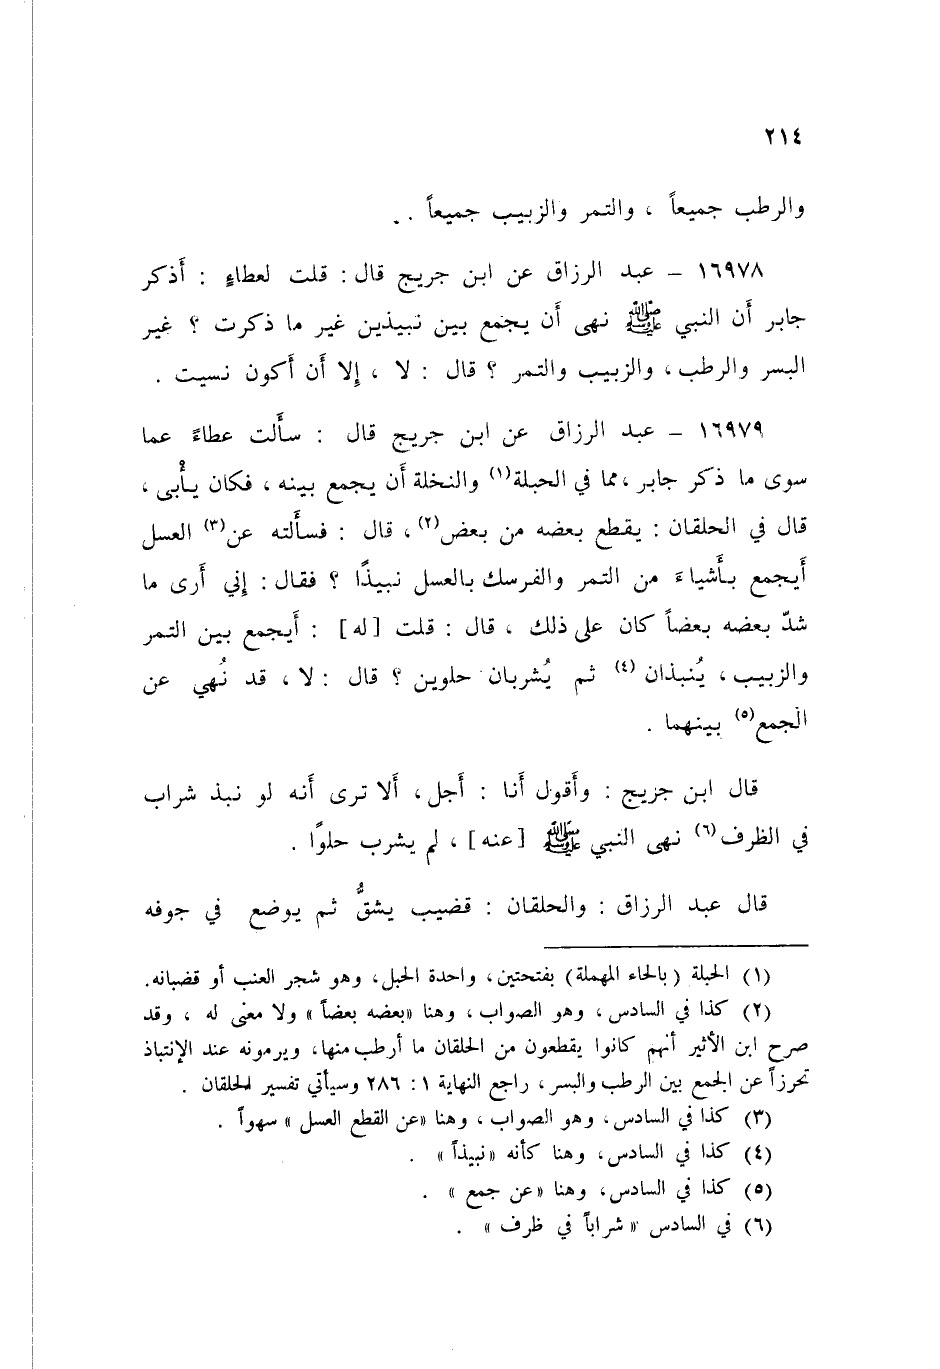 ٢١٤
والرطب جميعاً ، والتمر والزبيب جميعاً . .
١٦٩٧٨ – عبد الرزاق عن ابن جريج قال : قلت لعطاءٍ : أَذكر
جابر أَن النبي ﷺ نهى أَن يجمع بين نبيذين غير ما ذكرت ؟ غير
البسر والرطب ، والزبيب والتمر ؟ قال : لا ، إِلا أَن أَكون نسيت .
١٦٩٧٩ – عبد الرزاق عن ابن جريج قال : سأَلت عطاءً عما
سوى ما ذكر جابر ، مما في الحبلة(١) والنخلة أَن يجمع بينه ، فكان يأْبى ،
قال في الحلقان : يقطع بعضه من بعض(٢) ، قال : فسأَلته عن(٣) العسل
أَيجمع بأَشياءَ من التمر والفرسك بالعسل نبيذًا ؟ فقال : إِني أَرى ما
شدّ بعضه بعضاً كان على ذلك ، قال : قلت [له] : أَيجمع بين التمر
والزبيب ، يُنبذان (٤) ثم يُشربان حلوين ؟ قال : لا ، قد نُهي عن
الجمع(٥) بينهما .
قال ابن جزيج : وأَقول أَنا : أَجل ، أَلا ترى أَنه لو نبذ شراب
في الظرف(٦) نهى النبي ﷺ [عنه] ، لم يشرب حلوًا .
قال عبد الرزاق : والحلقان : قضيب يشقُّ ثم يوضع في جوفه
(١) الحبلة (بالحاء المهملة) بفتحتين ، واحدة الحبل ، وهو شجر العنب أو قضبانه.
(٢) كذا في السادس ، وهو الصواب ، وهنا «بعضه بعضاً» ولا معنى له ، وقد
صرح ابن الأثير أنهم كانوا يقطعون من الحلقان ما أرطب منها، ويرمونه عند الإنتباذ
تحرزاً عن الجمع بين الرطب والبسر ، راجع النهاية ١ : ٢٨٦ وسيأتي تفسير الحلقان .
(٣) كذا في السادس ، وهو الصواب ، وهنا «عن القطع العسل» سهواً .
(٤) كذا في السادس ، وهنا كأنه «نبيذاً» .
(٥) كذا في السادس ، وهنا «عن جمع» .
(٦) في السادس «شراباً في ظرف» .